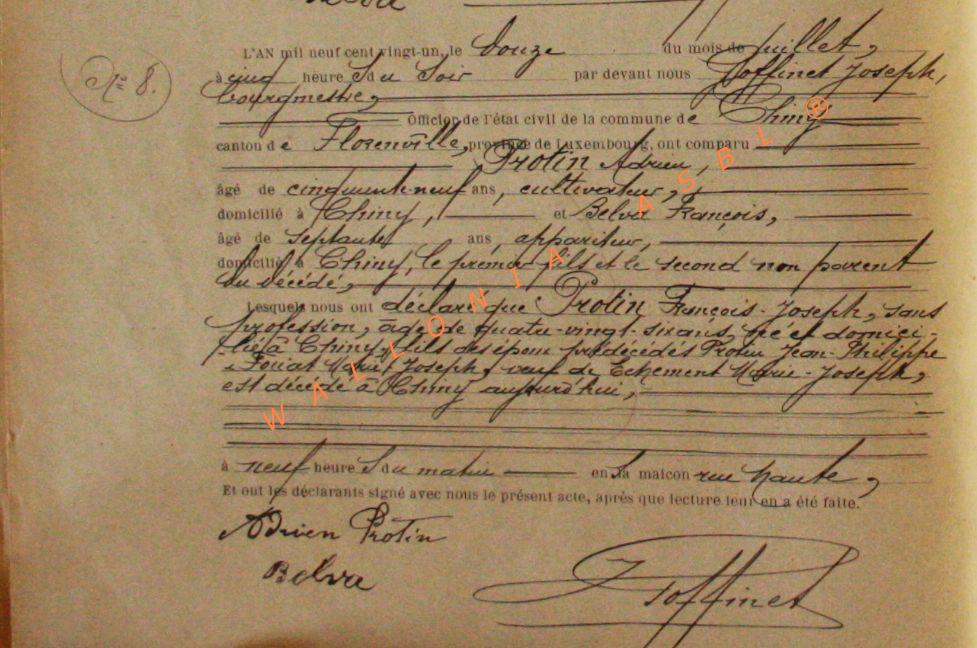 Belva
Nº 8.
L'AN mil neuf cent vingt-un, le douze du mois de juillet,
à cinq heures du soir par devant nous Goffinet Joseph,
bourgmestre,
Officier de l'état civil de la commune de Chiny
canton de Florenville, province de Luxembourg, ont comparu
Protin Adrien,
âgé de cinquante-neuf ans, cultivateur,
domicilié à Chiny, et Belva François,
âgé de septante ans, appariteur,
domicilié à Chiny, le premier fils et le second non parent
du décédé,
Lesquels nous ont déclaré que Protin François-Joseph, sans
profession, âgé de quatre-vingt-six ans, né et domici-
lié à Chiny, fils des époux prédécédés Protin Jean-Philippe
Marie Joseph, veuf de Echement Marie-Joseph,
est décédé à Chiny aujourd'hui,
à neuf heures du matin en sa maison rue haute,
Et ont les déclarants signé avec nous le présent acte, après que lecture leur en a été faite.
Adrien Protin
Belva
J Goffinet
WALLONIA ASBL ®